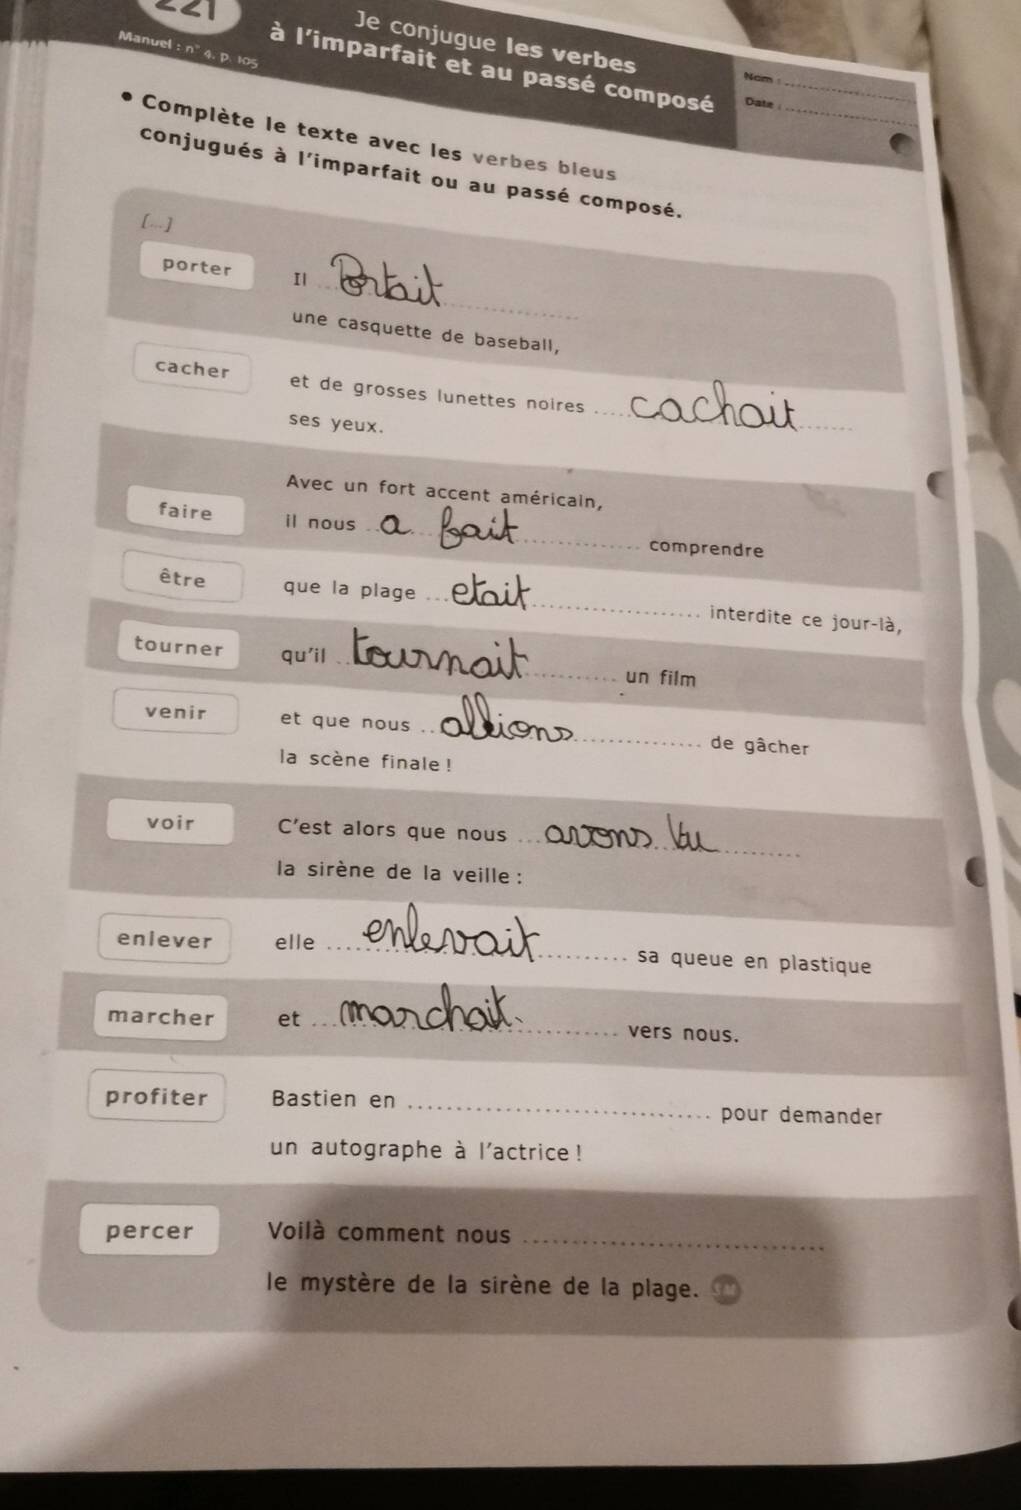 221
Je conjugue les verbes
à l'imparfait et au passé composé
Manuel : n° 4, p. 105
Nom :
Date :
• Complète le texte avec les verbes bleus
conjugués à l'imparfait ou au passé composé.
[...]
porter Il Portait
une casquette de baseball,
cacher et de grosses lunettes noires cachait
ses yeux.
Avec un fort accent américain,
faire il nous a fait comprendre
être que la plage etait interdite ce jour-là,
tourner qu'il tournait un film
venir et que nous allions de gâcher
la scène finale !
voir C'est alors que nous avons vu
la sirène de la veille :
enlever elle enlevait sa queue en plastique
marcher et marchait vers nous.
profiter Bastien en pour demander
un autographe à l'actrice !
percer Voilà comment nous
le mystère de la sirène de la plage.